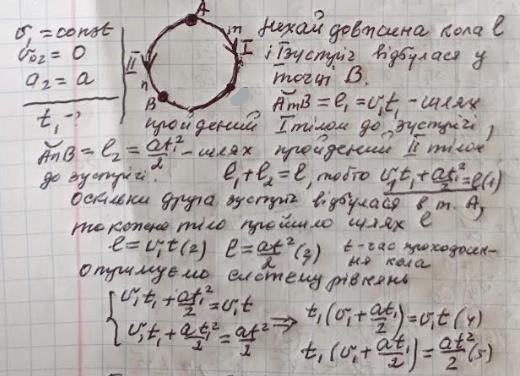 υ₁ = const
υ₀₂ = 0
a₂ = a
t₁ - ?
A
m
I
II
n
B
Нехай довжина кола l
і I зустріч відбулася у
точці B.
A͝mB = l₁ = υ₁t₁ - шлях
пройдений I тілом до зустрічі,
A͝nB = l₂ = at₁²/2 - шлях пройдений II тілом
до зустрічі. l₁ + l₂ = l, тобто υ₁t₁ + at₁²/2 = l (1)
Оскільки друга зустріч відбулася в т. A,
то кожне тіло пройшло шлях l
l = υ₁t (2) l = at²/2 (3) t - час проходжен-
ня кола
Отримуємо систему рівнянь
{ υ₁t₁ + at₁²/2 = υ₁t ⇒ t₁(υ₁ + at₁/2) = υ₁t (4)
υ₁t₁ + at₁²/2 = at²/2 t₁(υ₁ + at₁/2) = at²/2 (5)